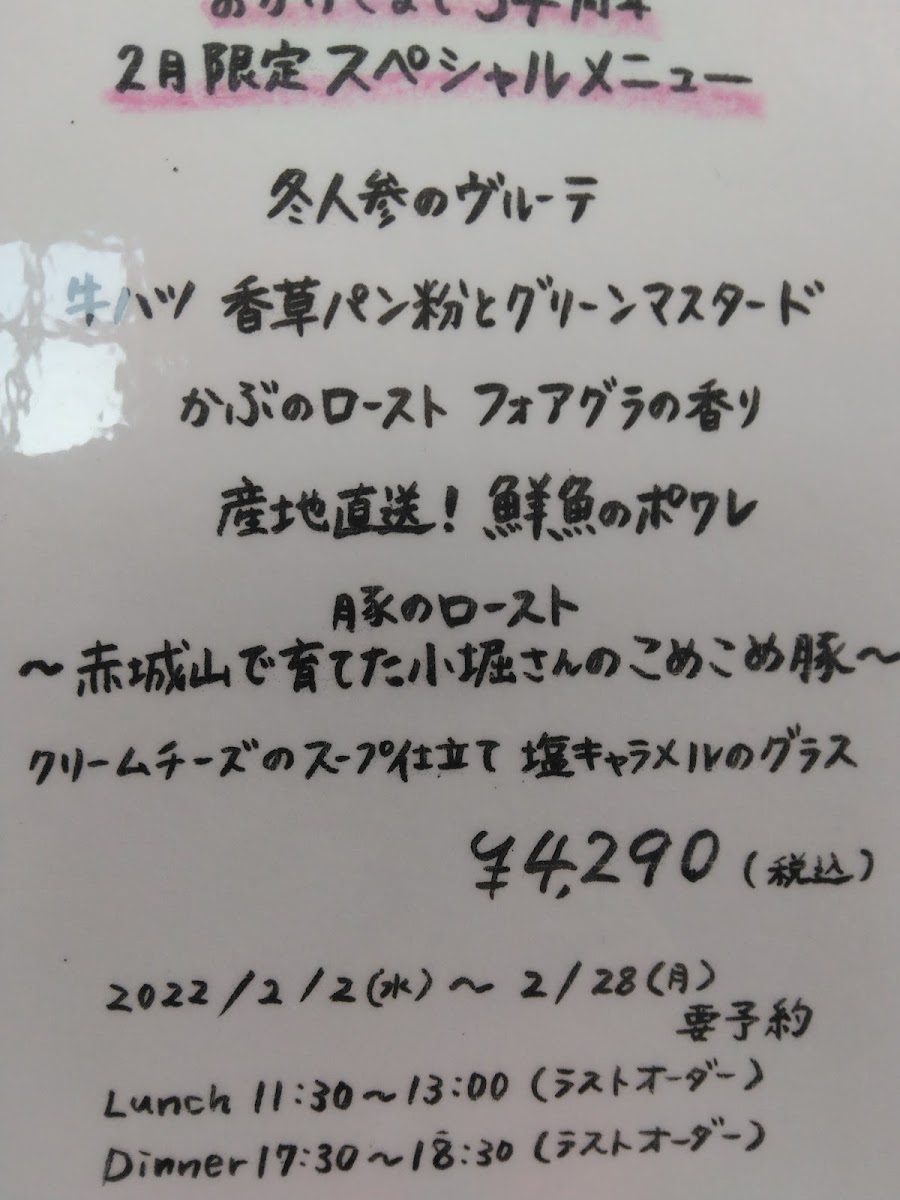 おかげさまで3周年
2月限定スペシャルメニュー
冬人参のヴルーテ
牛ハツ 香草パン粉とグリーンマスタード
かぶのロースト フォアグラの香り
産地直送! 鮮魚のポワレ
豚のロースト
～赤城山で育てた小堀さんのこめこめ豚～
クリームチーズのスープ仕立て 塩キャラメルのグラス
¥4,290 (税込)
2022/2/2(水)～2/28(月)
要予約
Lunch 11:30～13:00 (ラストオーダー)
Dinner 17:30～18:30 (ラストオーダー)